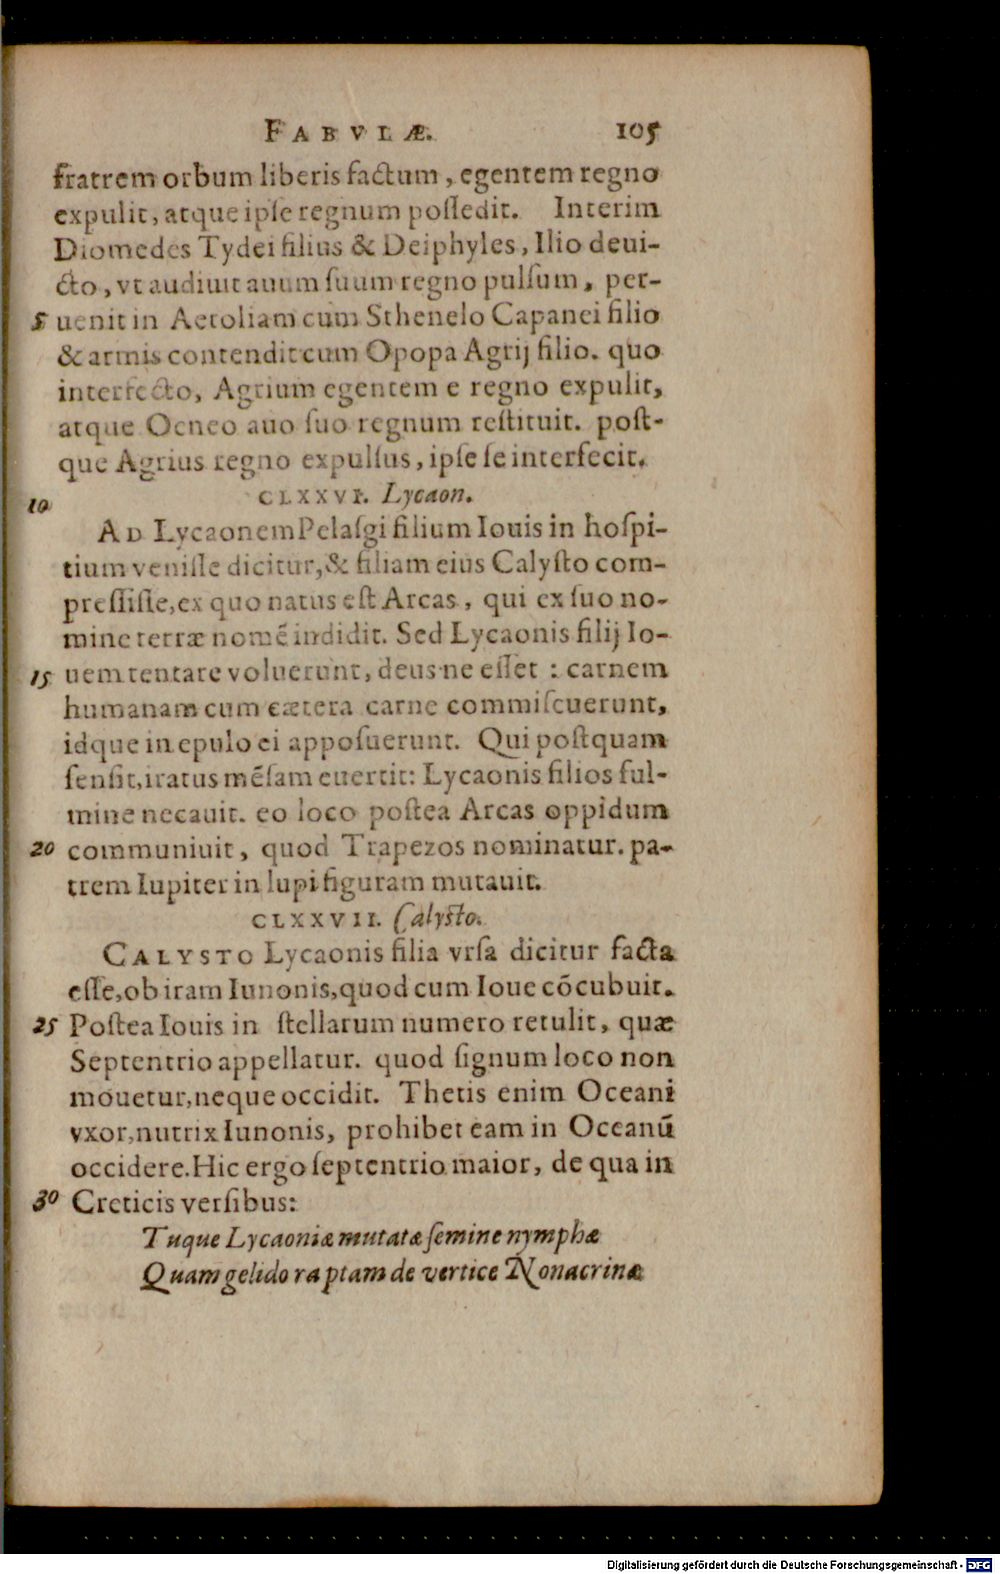 FABVLÆ. 105
fratrem orbum liberis factum, egentem regno
expulit, atque ipſe regnum poſſedit. Interim
Diomedes Tydei filius & Deiphyles, Ilio deui-
cto, vt audiuit auum ſuum regno pulſum, per-
5 uenit in Aetoliam cum Sthenelo Capanei filio
& armis contendit cum Opopa Agrij filio. quo
interfecto, Agrium egentem e regno expulit,
atque Oeneo auo ſuo regnum reſtituit. poſt-
que Agrius regno expulſus, ipſe ſe interfecit.
10 CLXXVI. Lycaon.
AD Lycaonem Pelaſgi filium Iouis in hoſpi-
tium veniſſe dicitur, & filiam eius Calyſto com-
preſſiſſe, ex quo natus eſt Arcas, qui ex ſuo no-
mine terræ nomẽ indidit. Sed Lycaonis filij Io-
15 uem tentare voluerunt, deus ne eſſet : carnem
humanam cum cætera carne commiſcuerunt,
idque in epulo ei appoſuerunt. Qui poſtquam
ſenſit, iratus mẽſam euertit: Lycaonis filios ful-
mine necauit. eo loco poſtea Arcas oppidum
20 communiuit, quod Trapezos nominatur. pa-
trem Iupiter in lupi figuram mutauit.
CLXXVII. Calyſto.
CALYSTO Lycaonis filia vrſa dicitur facta
eſſe, ob iram Iunonis, quod cum Ioue cõcubuit.
25 Poſtea Iouis in ſtellarum numero retulit, quæ
Septentrio appellatur. quod ſignum loco non
mouetur, neque occidit. Thetis enim Oceani
vxor, nutrix Iunonis, prohibet eam in Oceanũ
occidere. Hic ergo ſeptentrio maior, de qua in
30 Creticis verſibus:
Tuque Lycaoniæ mutatæ ſemine nymphæ
Quam gelido raptam de vertice Nonacrinæ
Digitalisierung gefördert durch die Deutsche Forschungsgemeinschaft - DFG